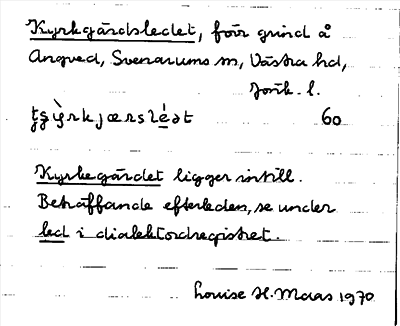 Kyrkgårdsledet, förr grind å
Angved, Svenarums sn, Västra hd,
Jönk. l.
60
Kyrkegärdet ligger intill.
Beträffande efterleden, se under
led i dialektordregistret.
Louise H. Maas 1970